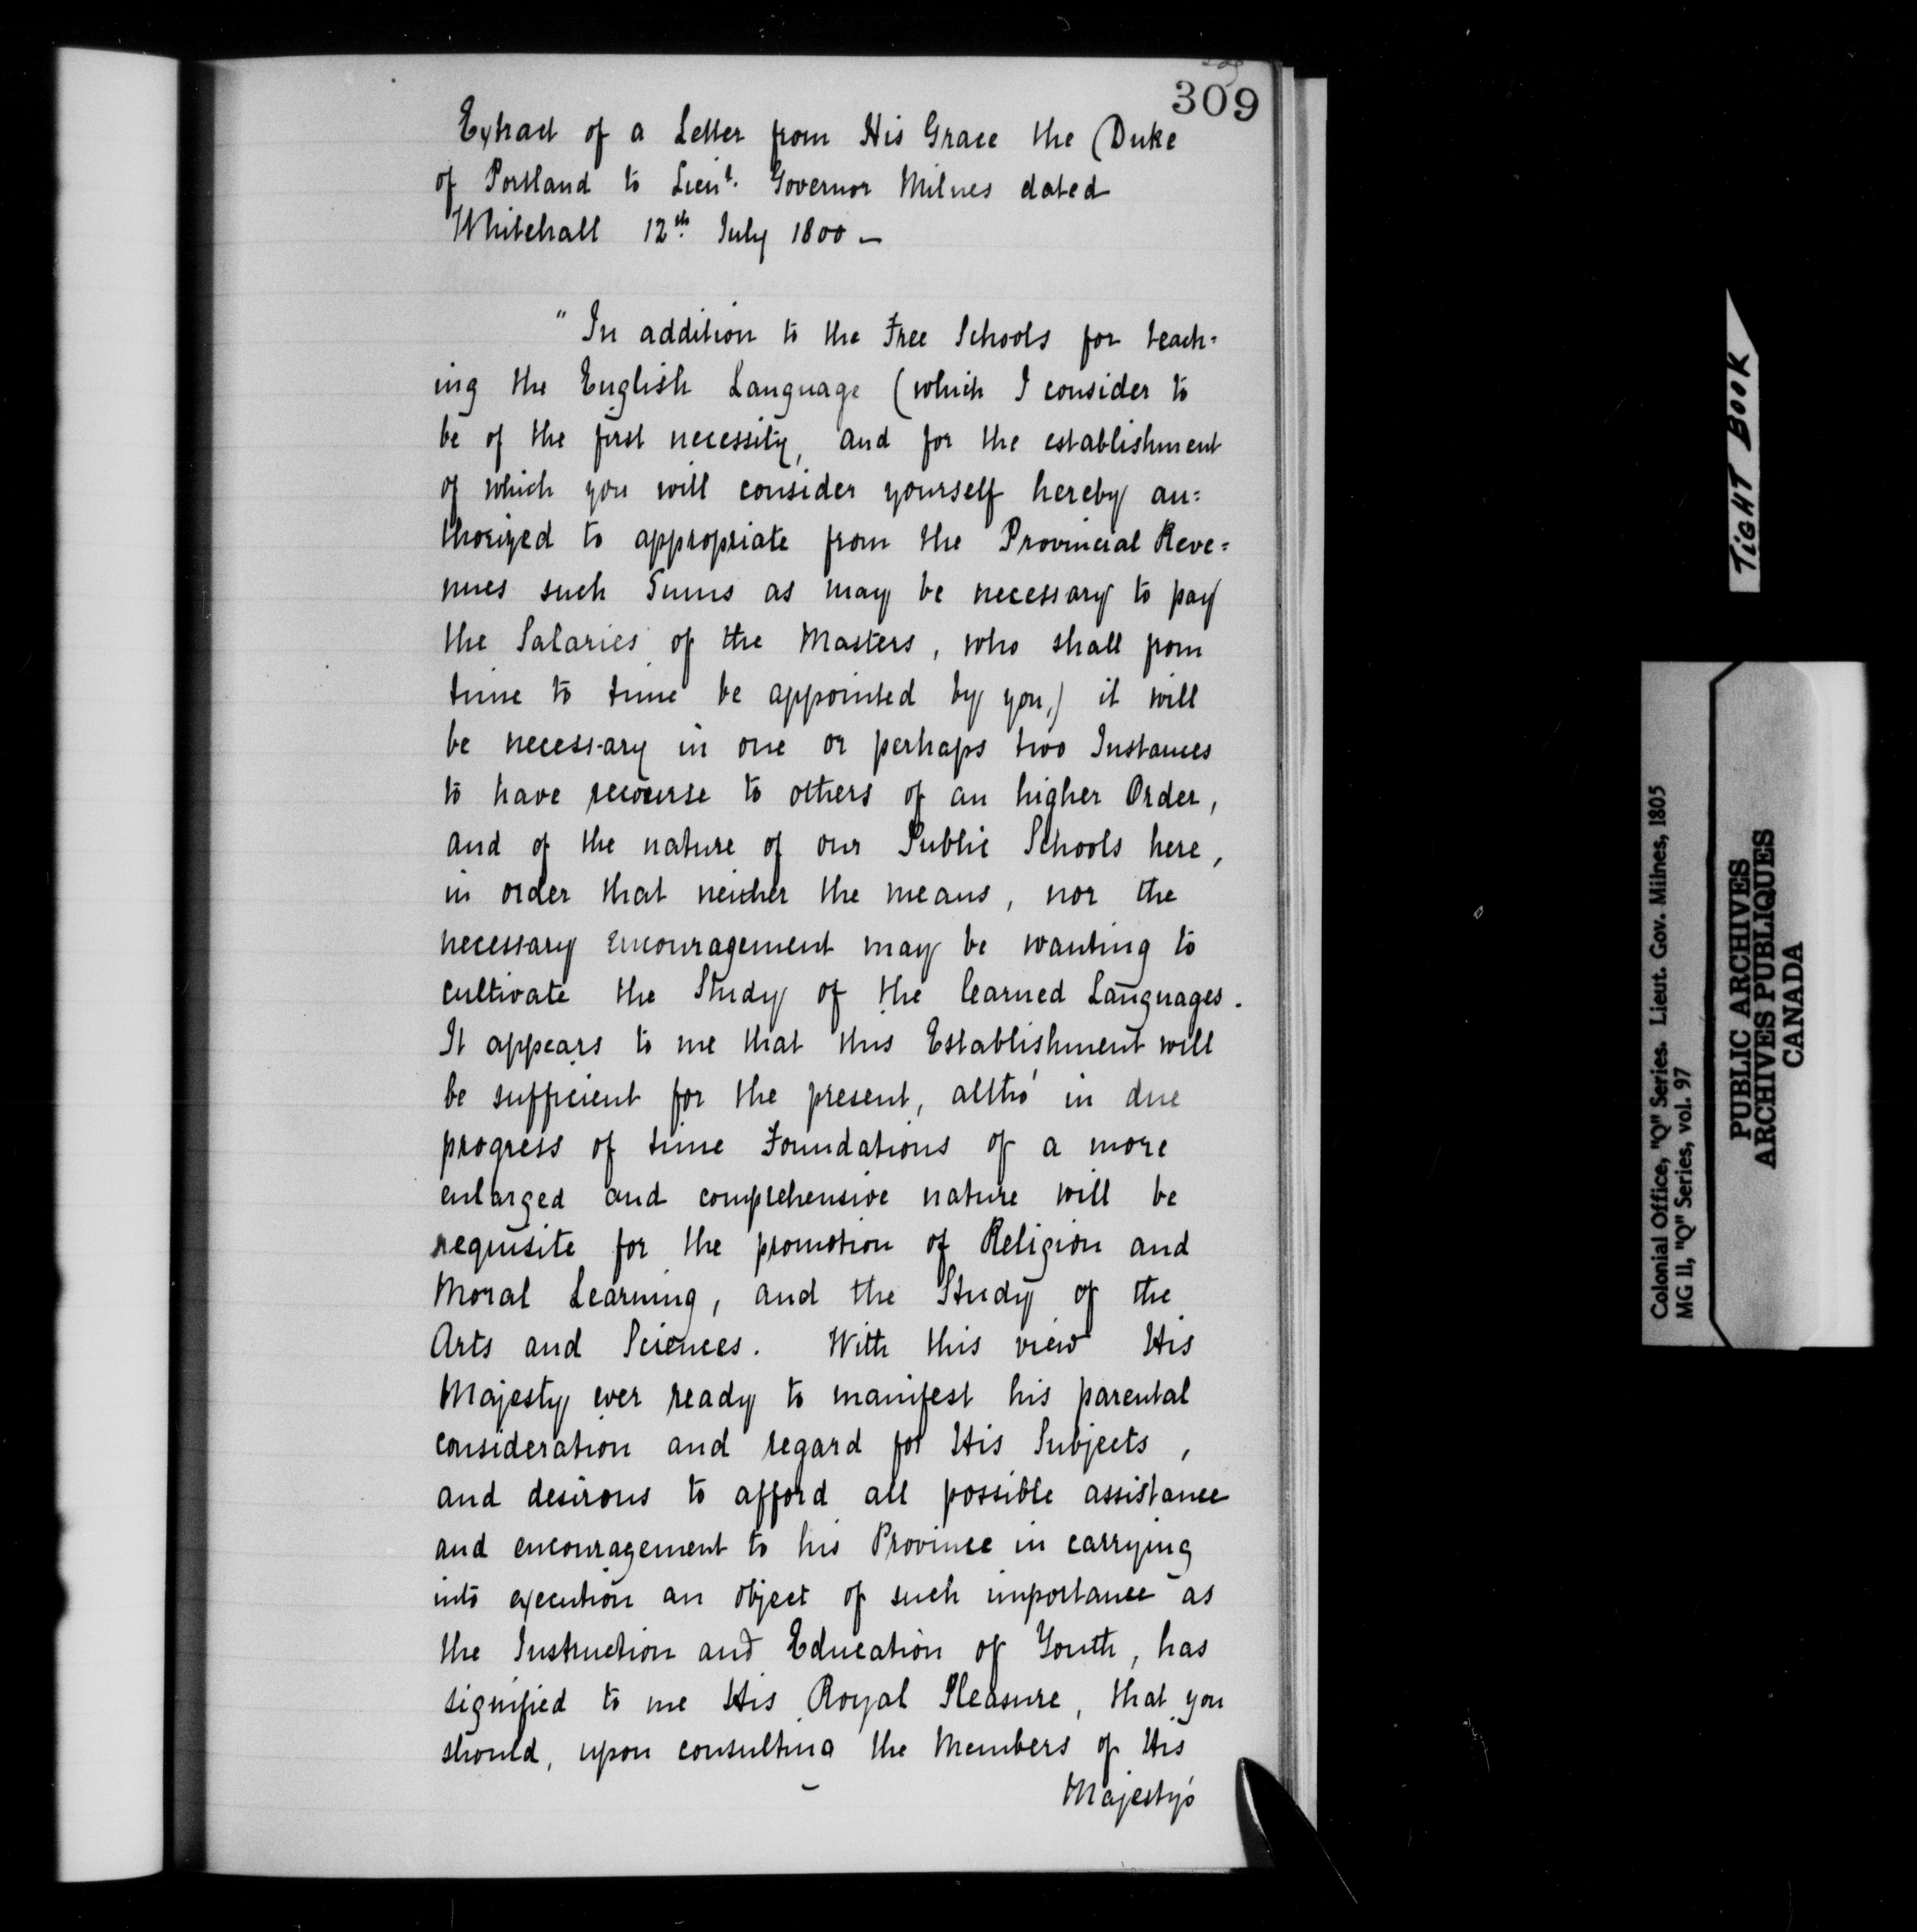 309
Extract of a Letter from His Grace the Duke
of Portland to Lieut. Governor Milnes dated
Whitehall 12th July 1800 —
" In addition to the Free Schools for teach=
ing the English Language (which I consider to
be of the first necessity, and for the establishment
of which you will consider yourself hereby au=
thorized to appropriate from the Provincial Reve=
nues such Sums as may be necessary to pay
the Salaries of the Masters, who shall from
time to time be appointed by you,) it will
be necessary in one or perhaps two Instances
to have recourse to others of an higher Order,
and of the nature of our Public Schools here,
in order that neither the means, nor the
necessary encouragement may be wanting to
cultivate the Study of the learned Languages.
It appears to me that this Establishment will
be sufficient for the present, altho' in due
progress of time Foundations of a more
enlarged and comprehensive nature will be
requisite for the promotion of Religion and
Moral Learning, and the Study of the
Arts and Sciences. With this view His
Majesty ever ready to manifest his parental
consideration and regard for His Subjects,
and desirous to afford all possible assistance
and encouragement to his Province in carrying
into execution an object of such importance as
the Instruction and Education of Youth, has
signified to me His Royal Pleasure, that you
should, upon consulting the Members of His
Majesty's
TIGHT BOOK
Colonial Office, "Q" Series. Lieut. Gov. Milnes, 1805
MG 11, "Q" Series, vol. 97
PUBLIC ARCHIVES
ARCHIVES PUBLIQUES
CANADA